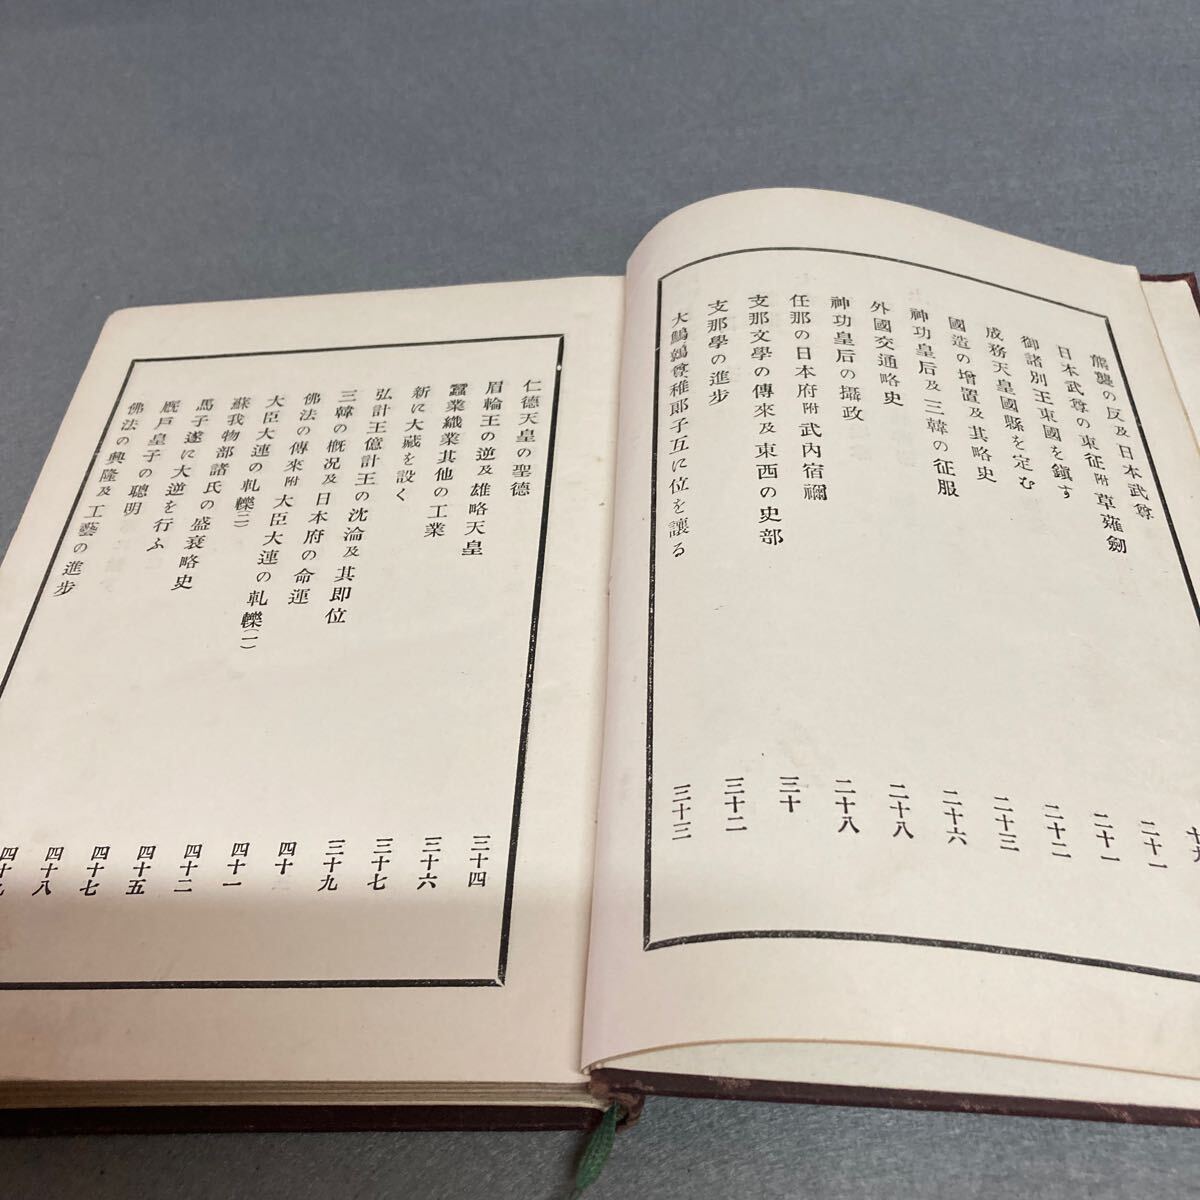 熊襲の反及日本武尊
日本武尊の東征附草薙劒
十九
御諸別王東國を鎭す
二十一
成務天皇國縣を定む
二十一
國造の增置及其略史
二十二
神功皇后及三韓の征服
二十三
外國交通略史
二十六
神功皇后の攝政
二十八
任那の日本府附武內宿禰
二十八
支那文學の傳來及東西の史部
三十
支那學の進步
三十二
大鷦鷯尊稚郎子互に位を讓る
三十三
仁德天皇の聖德
三十四
眉輪王の逆及雄略天皇
三十六
蠶業織業其他の工業
三十七
新に大藏を設く
三十九
弘計王億計王の沈淪及其即位
四十
三韓の槪况及日本府の命運
四十一
佛法の傳來附大臣大連の軋轢(一)
四十二
大臣大連の軋轢(二)
四十五
蘇我物部諸氏の盛衰略史
四十七
馬子遂に大逆を行ふ
四十八
厩戶皇子の聰明
四十九
佛法の興隆及工藝の進步